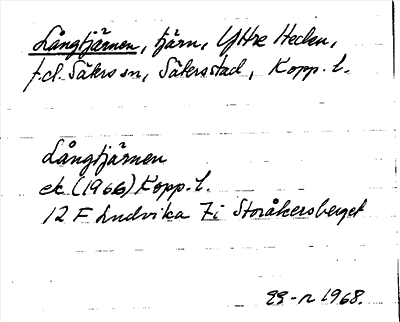 Långtjärnen, tjärn, Yttre Heden,
f.d. Säters sn, Sätersstad, Kopp. l.
Långtjärnen
ek. (1966) Kopp. l.
12 F Ludvika 7i Storåkersberget
1968.